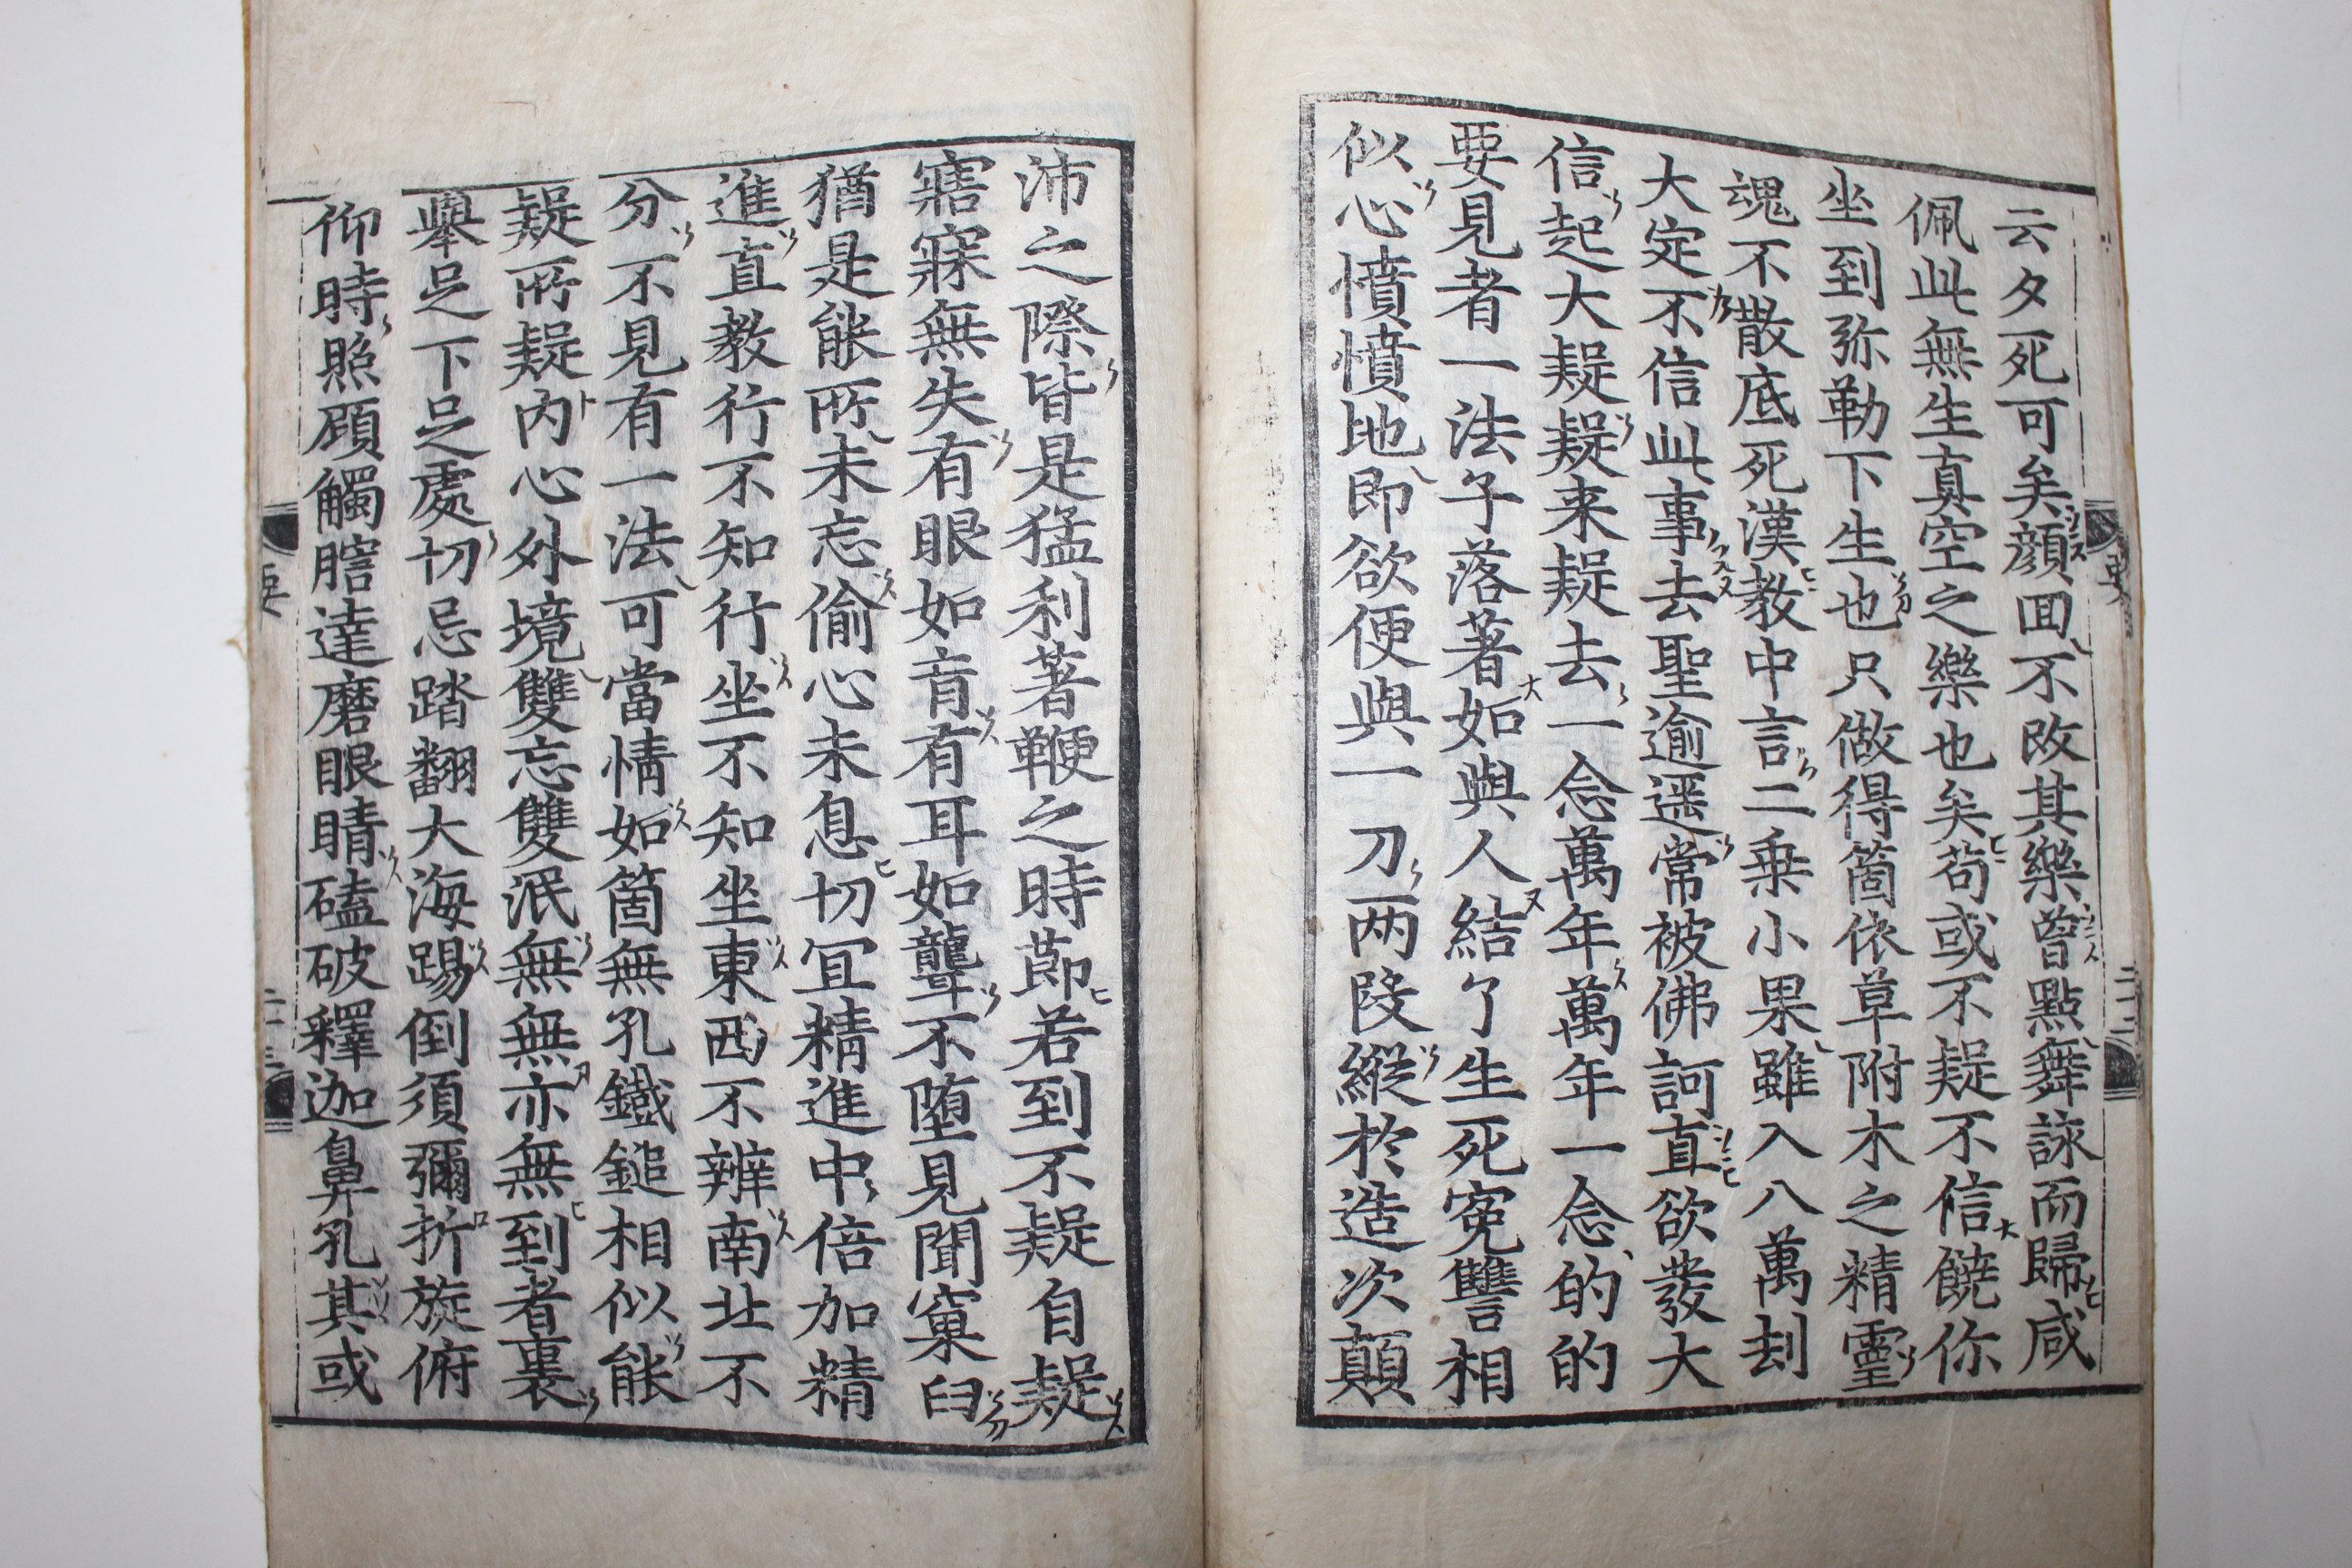 云夕死可矣顔回不改其樂曾點舞詠而歸咸
佩此無生真空之樂也矣苟或不疑不信饒你
坐到弥勒下生也只做得箇依草附木之精靈
魂不散底死漢教中言二乗小果雖入八萬刼
大定不信此事去聖逾遥常被佛訶直欲發大
信起大疑疑来疑去一念萬年萬年一念的的
要見者一法子落著如與人結了生死寃讐相
似心憤憤地即欲便與一刀两段縱於造次顛
沛之際皆是猛利著鞭之時莭若到不疑自疑
寤寐無失有眼如盲有耳如聾不堕見聞窠臼
猶是能所未忘偷心未息切冝精進中倍加精
進直教行不知行坐不知坐東西不辨南北不
分不見有一法可當情如箇無孔鐵鎚相似能
疑所疑內心外境雙忘雙泯無無亦無到者裏
擧足下足處切忌踏翻大海踢倒須彌折旋俯
仰時照顧觸瞎達磨眼睛磕破釋迦鼻孔其或
要
二十二
要
二十三